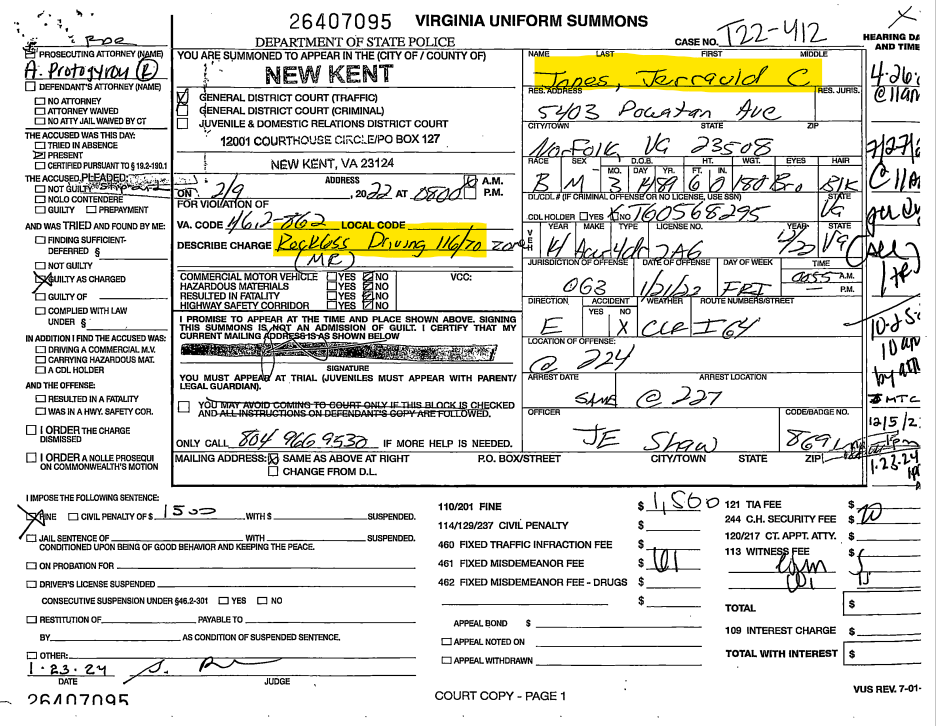 26407095 VIRGINIA UNIFORM SUMMONS
DEPARTMENT OF STATE POLICE
CASE NO. T22-412
HEARING DA
AND TIME
PROSECUTING ATTORNEY (NAME)
A. Protogyrou (R)
DEFENDANT'S ATTORNEY (NAME)
NO ATTORNEY
ATTORNEY WAIVED
NO ATTY JAIL WAIVED BY CT
THE ACCUSED WAS THIS DAY:
TRIED IN ABSENCE
PRESENT
CERTIFIED PURSUANT TO § 19.2-190.1
THE ACCUSED PLEADED:
NOT GUILTY
NOLO CONTENDERE
GUILTY PREPAYMENT
AND WAS TRIED AND FOUND BY ME:
FINDING SUFFICIENT-
DEFERRED §
NOT GUILTY
GUILTY AS CHARGED
GUILTY OF
COMPLIED WITH LAW
UNDER §
IN ADDITION I FIND THE ACCUSED WAS:
DRIVING A COMMERCIAL M.V.
CARRYING HAZARDOUS MAT.
A CDL HOLDER
AND THE OFFENSE:
RESULTED IN A FATALITY
WAS IN A HWY. SAFETY COR.
I ORDER THE CHARGE
DISMISSED
I ORDER A NOLLE PROSEQUI
ON COMMONWEALTH'S MOTION
YOU ARE SUMMONED TO APPEAR IN THE (CITY OF / COUNTY OF)
NEW KENT
GENERAL DISTRICT COURT (TRAFFIC)
GENERAL DISTRICT COURT (CRIMINAL)
JUVENILE & DOMESTIC RELATIONS DISTRICT COURT
12001 COURTHOUSE CIRCLE/PO BOX 127
NEW KENT, VA 23124
ADDRESS
A.M.
ON 2/9, 2022 AT 0800 P.M.
FOR VIOLATION OF
VA. CODE 46.2-862 LOCAL CODE
DESCRIBE CHARGE Reckless Driving 116/70 zone
(MR)
COMMERCIAL MOTOR VEHICLE YES NO VCC:
HAZARDOUS MATERIALS YES NO
RESULTED IN FATALITY YES NO
HIGHWAY SAFETY CORRIDOR YES NO
I PROMISE TO APPEAR AT THE TIME AND PLACE SHOWN ABOVE. SIGNING
THIS SUMMONS IS NOT AN ADMISSION OF GUILT. I CERTIFY THAT MY
CURRENT MAILING ADDRESS IS AS SHOWN BELOW
SIGNATURE
YOU MUST APPEAR AT TRIAL (JUVENILES MUST APPEAR WITH PARENT/
LEGAL GUARDIAN).
YOU MAY AVOID COMING TO COURT ONLY IF THIS BLOCK IS CHECKED
AND ALL INSTRUCTIONS ON DEFENDANT'S COPY ARE FOLLOWED.
ONLY CALL 804 966 9530 IF MORE HELP IS NEEDED.
MAILING ADDRESS: SAME AS ABOVE AT RIGHT P.O. BOX/STREET CITY/TOWN STATE ZIP
CHANGE FROM D.L.
NAME LAST FIRST MIDDLE
Jones, Jerrauld C.
RES. ADDRESS RES. JURIS.
5403 Powatan Ave
CITY/TOWN STATE ZIP
Norfolk VA 23508
RACE SEX D.O.B. HT. WGT. EYES HAIR
MO. DAY YR. FT. IN.
B M 3 6 0 180 Bro Blk
DL/CDL# (IF CRIMINAL OFFENSE OR NO LICENSE, USE SSN) STATE
CDL HOLDER YES NO T60568295 VA
VEH YEAR MAKE TYPE LICENSE NO. YEAR STATE
14 Acur 4dr 2AG
JURISDICTION OF OFFENSE DATE OF OFFENSE DAY OF WEEK TIME
063 1/21/22 FRI 0055 A.M.
P.M.
DIRECTION ACCIDENT WEATHER ROUTE NUMBERS/STREET
YES NO
E X CLR I64
LOCATION OF OFFENSE:
@ 224
ARREST DATE ARREST LOCATION
SAME @ 227
OFFICER CODE/BADGE NO.
JE Shaw 8691
4-26
@ 11am
10-25
10 am
MTC
12/5/2
1.23.24
I IMPOSE THE FOLLOWING SENTENCE:
FINE CIVIL PENALTY OF $ 1500 WITH $ SUSPENDED.
JAIL SENTENCE OF WITH SUSPENDED.
CONDITIONED UPON BEING OF GOOD BEHAVIOR AND KEEPING THE PEACE.
ON PROBATION FOR
DRIVER'S LICENSE SUSPENDED
CONSECUTIVE SUSPENSION UNDER §46.2-301 YES NO
RESTITUTION OF PAYABLE TO
BY AS CONDITION OF SUSPENDED SENTENCE.
OTHER:
1.23.24
DATE JUDGE
26407095
110/201 FINE $ 1,500
114/129/237 CIVIL PENALTY $
460 FIXED TRAFFIC INFRACTION FEE $
461 FIXED MISDEMEANOR FEE $ 61
462 FIXED MISDEMEANOR FEE - DRUGS $
$
APPEAL BOND $
APPEAL NOTED ON
APPEAL WITHDRAWN
121 TIA FEE $
244 C.H. SECURITY FEE $
120/217 CT. APPT. ATTY. $
113 WITNESS FEE $
TOTAL $
109 INTEREST CHARGE $
TOTAL WITH INTEREST $
COURT COPY - PAGE 1
VUS REV. 7-01-